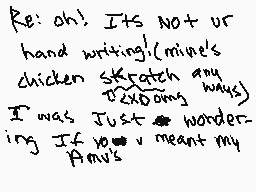 Re: oh! Its Not ur
hand writing! (mine's
chicken skratch any
ways)
I was Just wonder-
ing If u meant my
Amu's